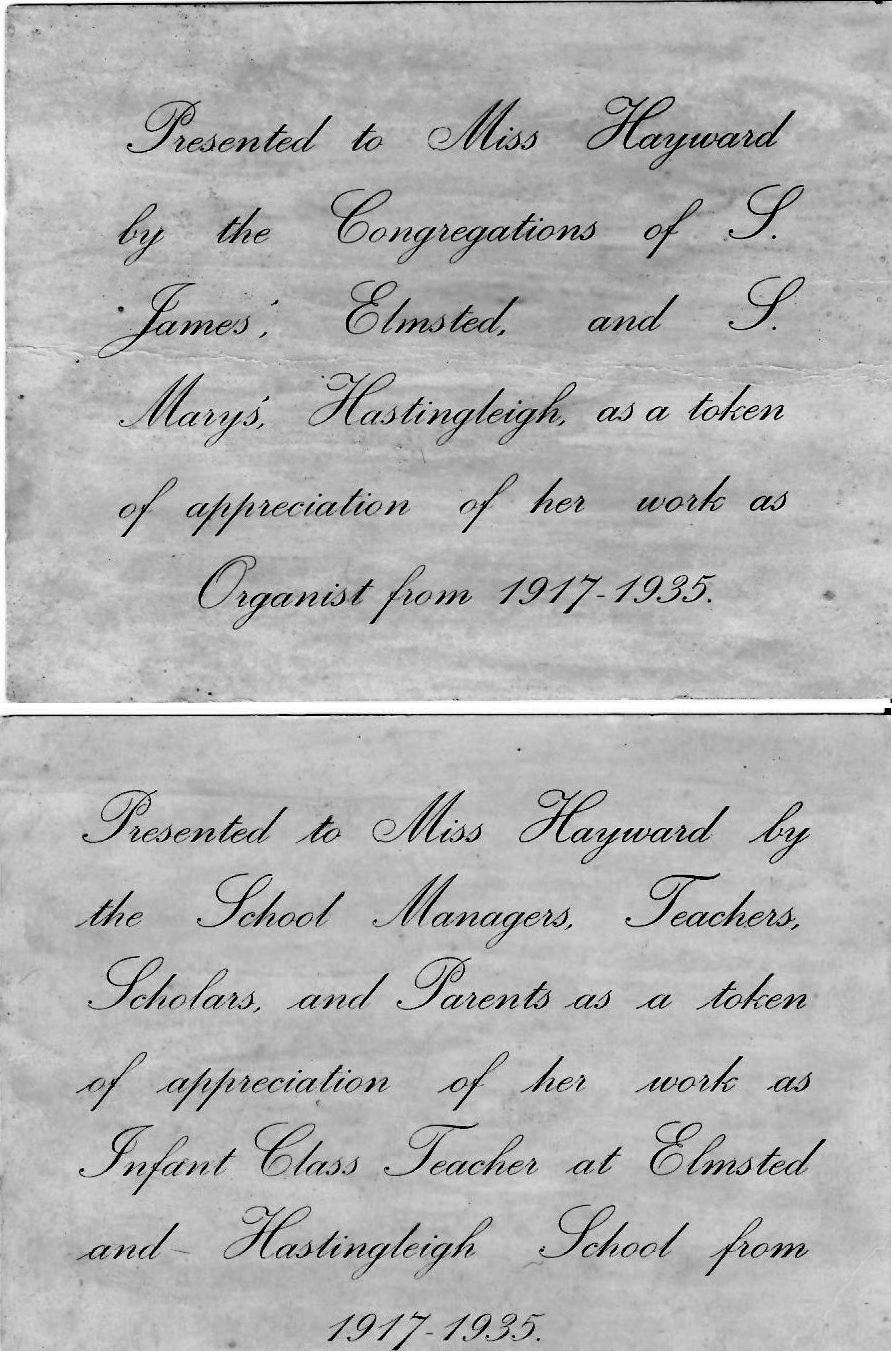 Presented to Miss Hayward
by the Congregations of S.
James', Elmsted, and S.
Marys', Hastingleigh, as a token
of appreciation of her work as
Organist from 1917-1935.
Presented to Miss Hayward by
the School Managers, Teachers,
Scholars, and Parents as a token
of appreciation of her work as
Infant Class Teacher at Elmsted
and Hastingleigh School from
1917-1935.